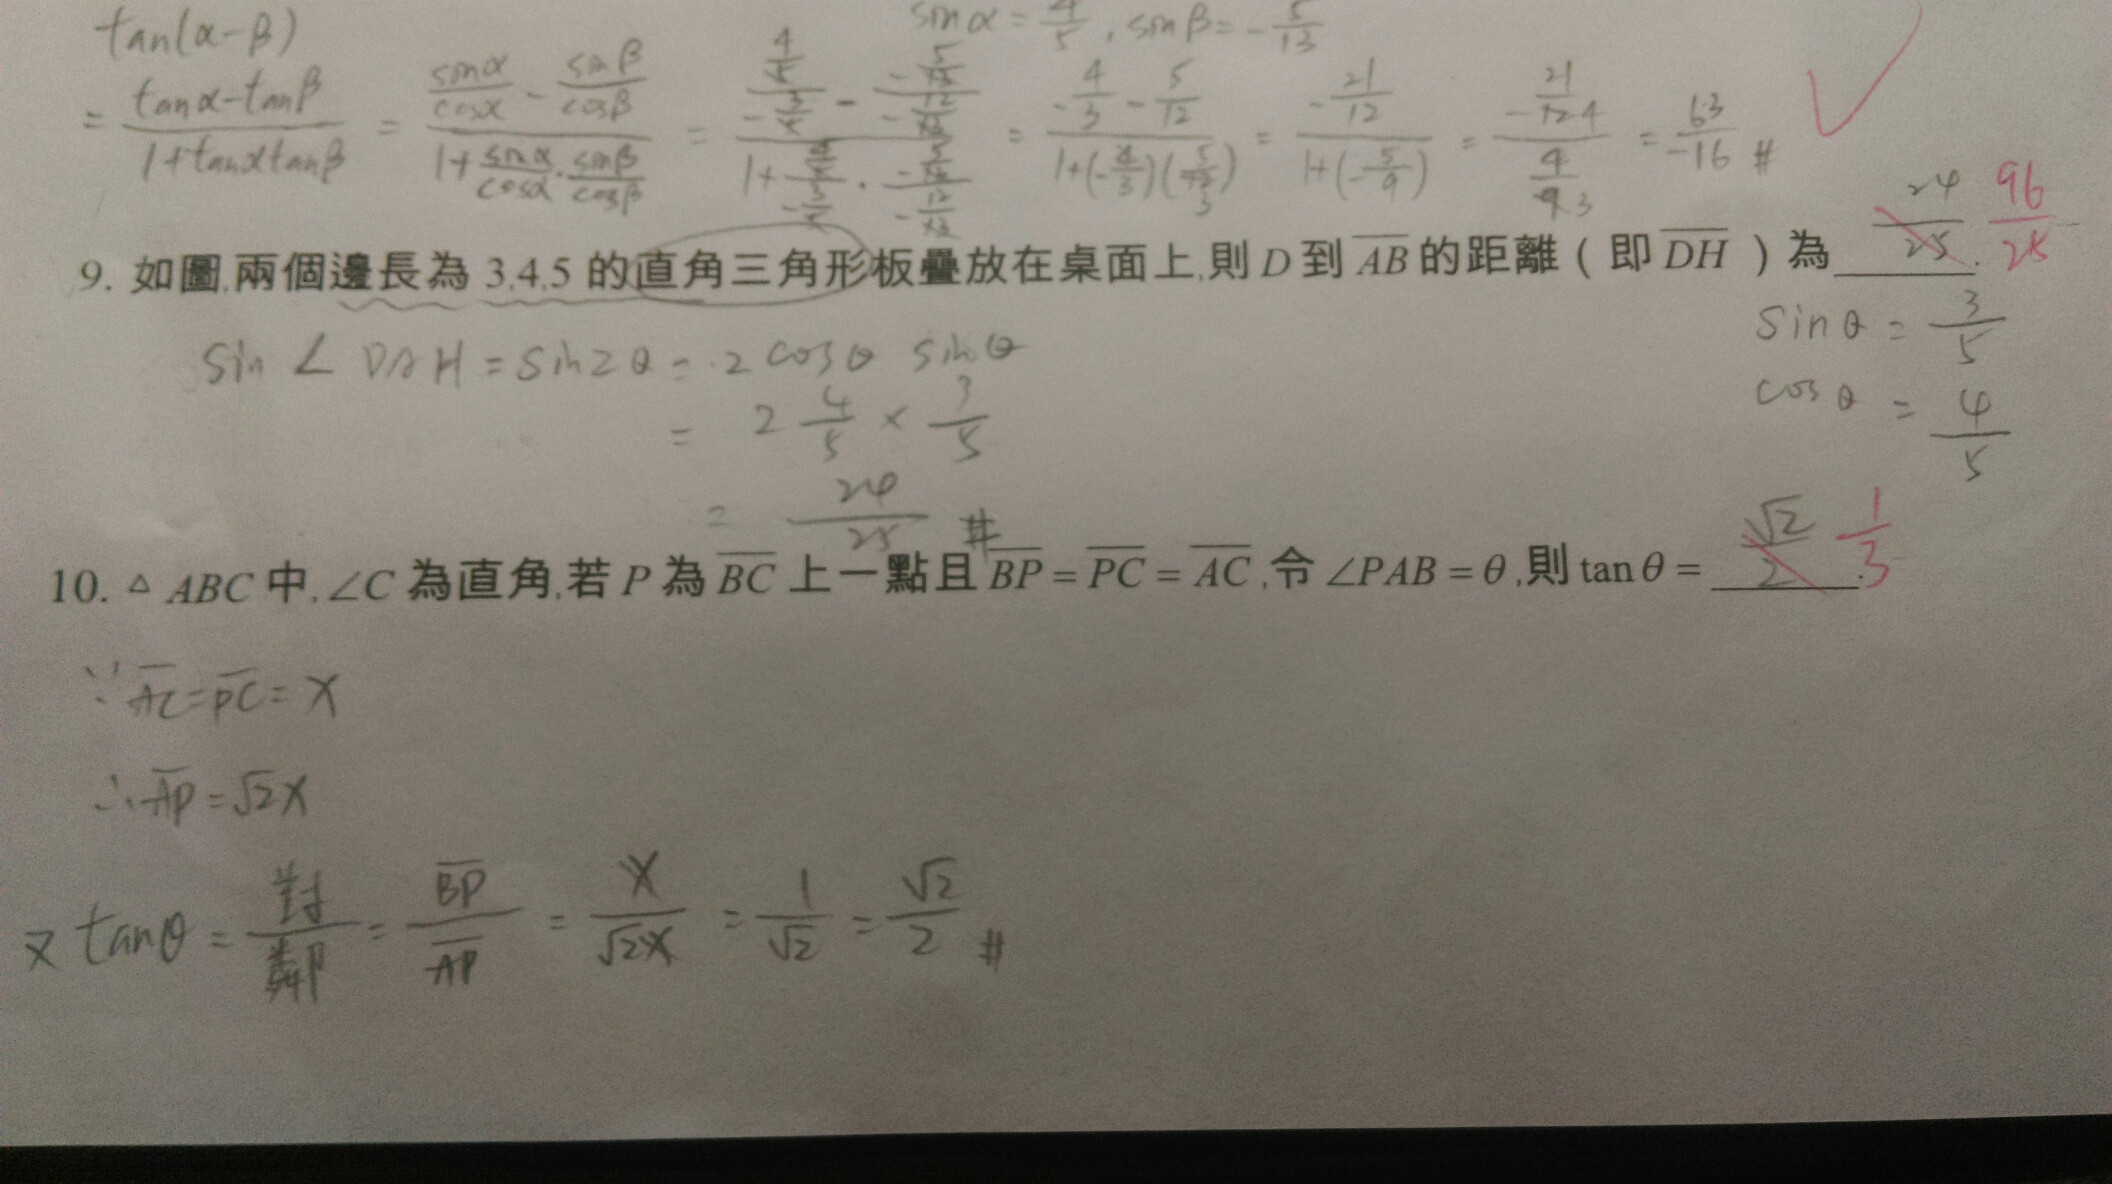 tan(α-β)
sinα = 4/5 , sinβ = -5/13
= (tanα-tanβ)/(1+tanαtanβ) = (sinα/cosα - sinβ/cosβ)/(1+sinα/cosα·sinβ/cosβ) = ((4/5)/(-3/5) - (-5/13)/(-12/13))/(1+(4/5)/(-3/5)·(-5/13)/(-12/13)) = (-4/3 - 5/12)/(1+(-4/3)(5/12)) = (-21/12)/(1+(-5/9)) = (-21/12)/(4/9) = 63/-16 #
9. 如圖,兩個邊長為 3,4,5 的直角三角形板疊放在桌面上,則 D 到 AB 的距離（即 DH ）為 24/25 . 96/25
sinθ = 3/5
cosθ = 4/5
Sin∠DAH = sin2θ = 2 cosθ sinθ
= 2 4/5 × 3/5
= 24/25 #
10. △ABC 中,∠C 為直角,若 P 為 BC 上一點且 BP = PC = AC ,令 ∠PAB = θ ,則 tan θ = √2/2 . 1/3
∵ AC = PC = X
∴ AP = √2X
又 tanθ = 對/鄰 = BP/AP = X/√2X = 1/√2 = √2/2 #